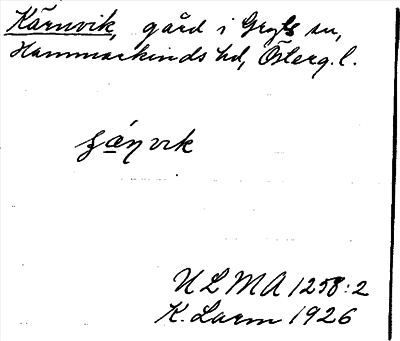 Kärnvik, gård i Gryts sn,
Hammarkinds hd, Österg. l.
ULMA 1258:2
K. Larm 1926